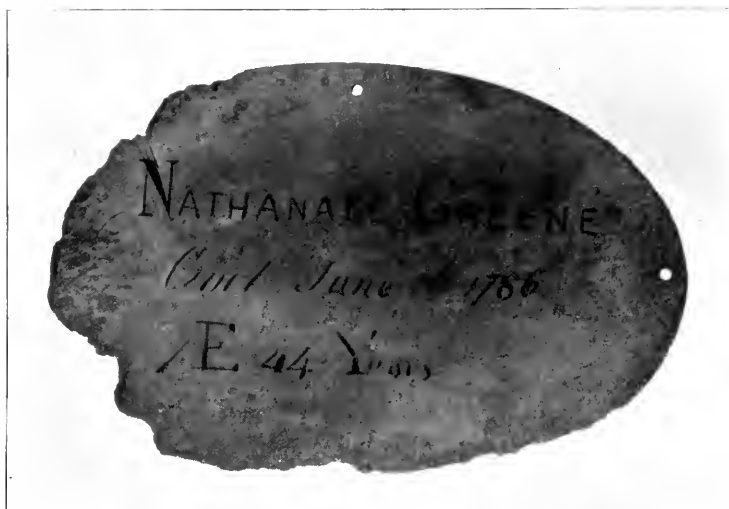 NATHANAEL GREENE
Obiit June 1786
Æ 44 Years